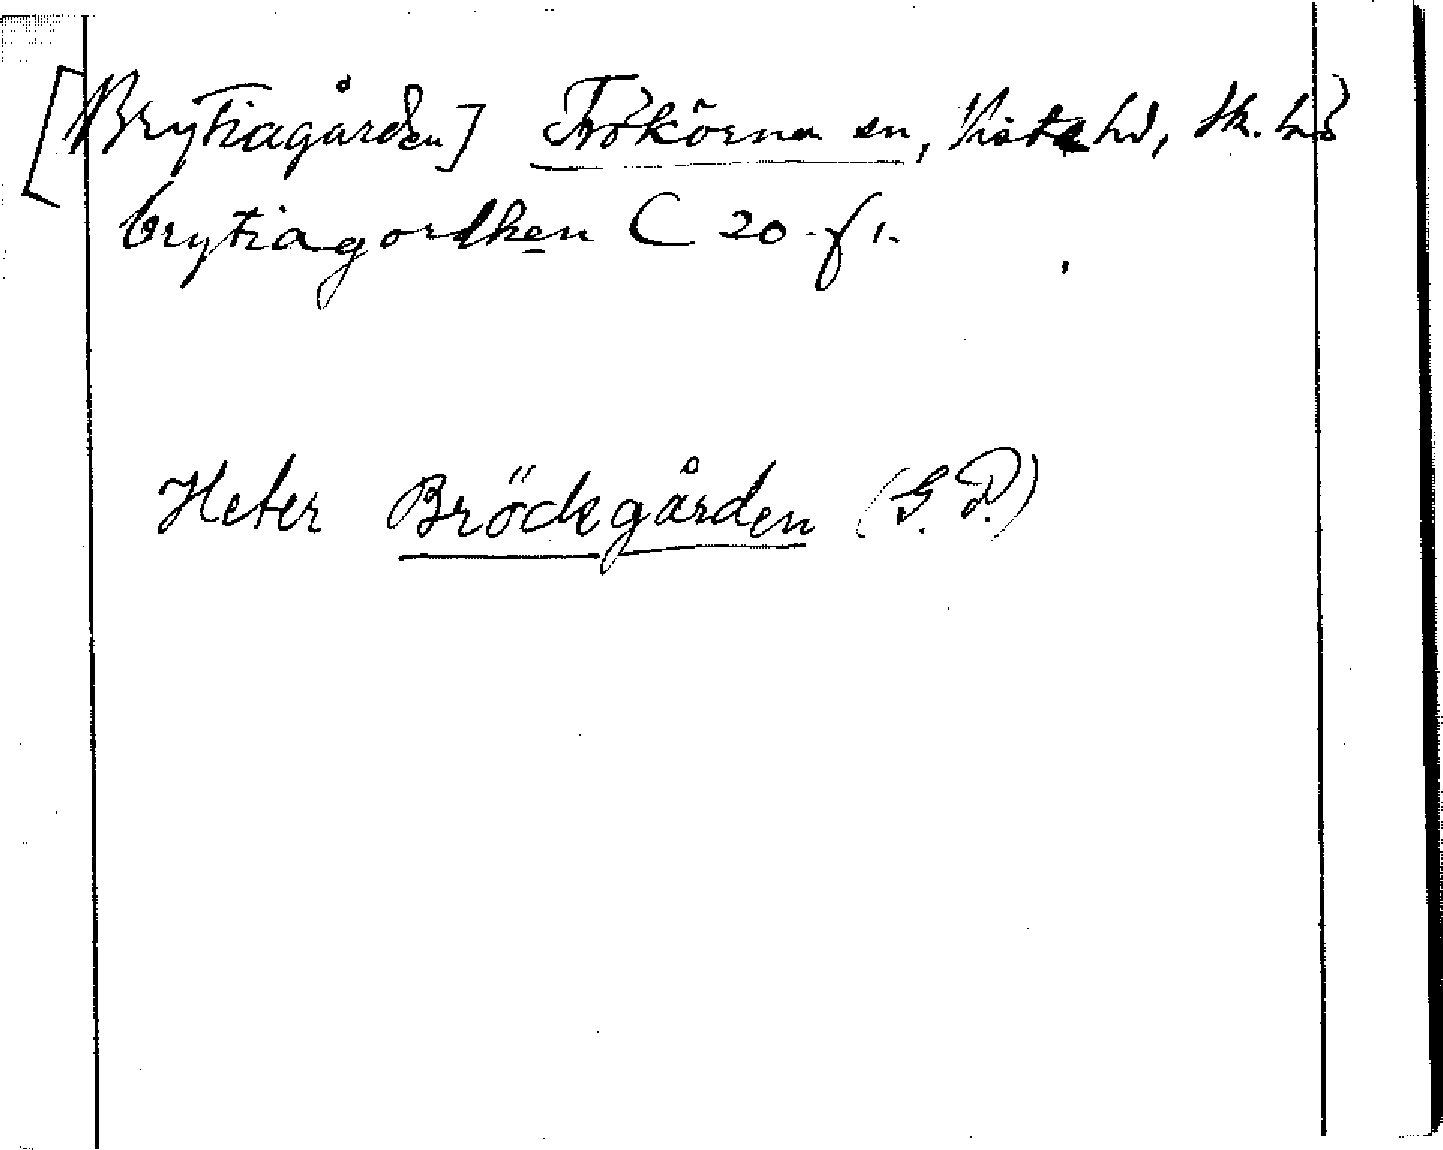 [Brytiagården] Trökörna sn, Viste hd, Sk. län
brytiagordhen C 20 f 1.
Heter Bröckgården (G. P.)